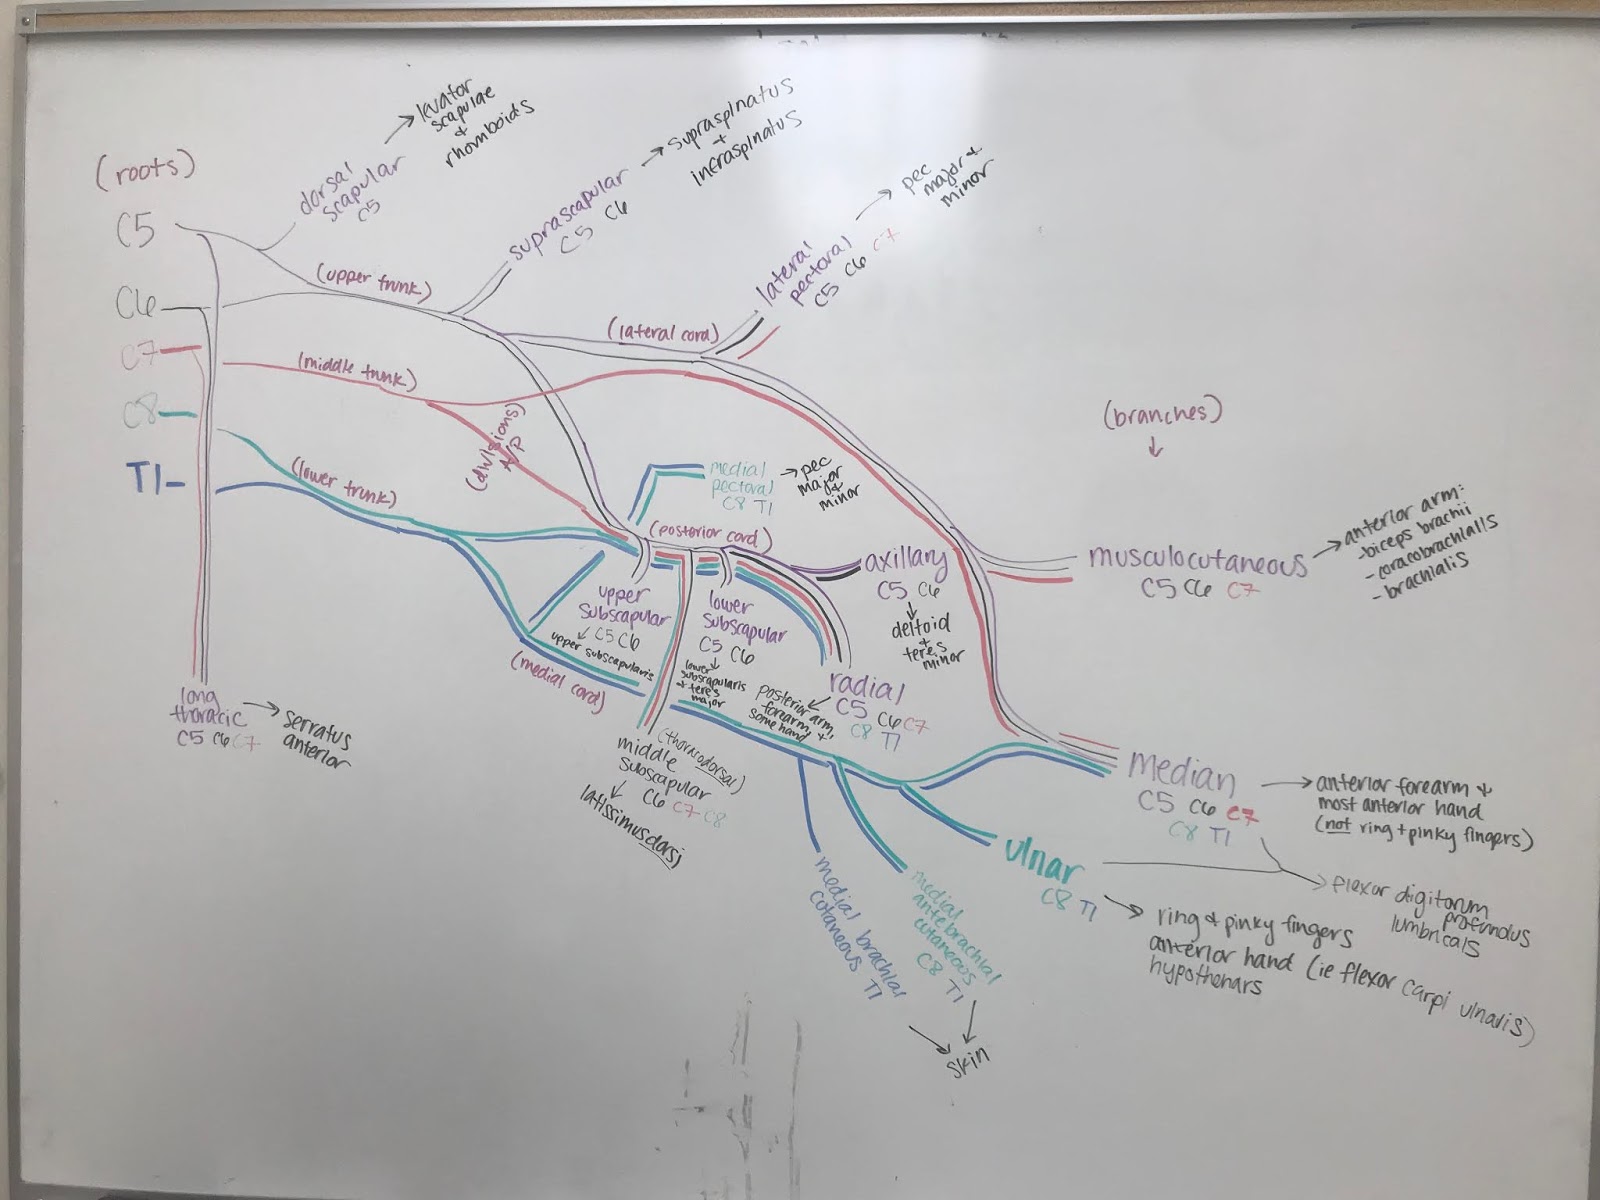 (roots)
C5
C6
C7
C8
T1
dorsal
scapular
C5
levator
scapulae
+
rhomboids
suprascapular
C5 C6
supraspinatus
+
infraspinatus
lateral
pectoral
C5 C6 C7
pec
major +
minor
(upper trunk)
(lateral cord)
(middle trunk)
(divisions)
A/P
(lower trunk)
medial
pectoral
C8 T1
pec
major
+
minor
(branches)
(posterior cord)
axillary
C5 C6
deltoid
+
teres
minor
musculocutaneous
C5 C6 C7
anterior arm:
-biceps brachii
-coracobrachialis
-brachialis
upper
subscapular
C5 C6
upper subscapularis
lower
subscapular
C5 C6
lower
subscapularis
+ teres
major
(medial cord)
radial
C5 C6 C7
C8 T1
posterior arm,
forearm, +
some hand
long
thoracic
C5 C6 C7
serratus
anterior
(thoracodorsal)
middle
subscapular
C6 C7 C8
latissimus dorsi
median
C5 C6 C7
C8 T1
anterior forearm +
most anterior hand
(not ring + pinky fingers)
ulnar
C8 T1
flexor digitorum
profundus
lumbricals
ring + pinky fingers
anterior hand (ie flexor carpi ulnaris)
hypothenars
medial brachial
cutaneous T1
medial
antebrachial
cutaneous
C8 T1
skin